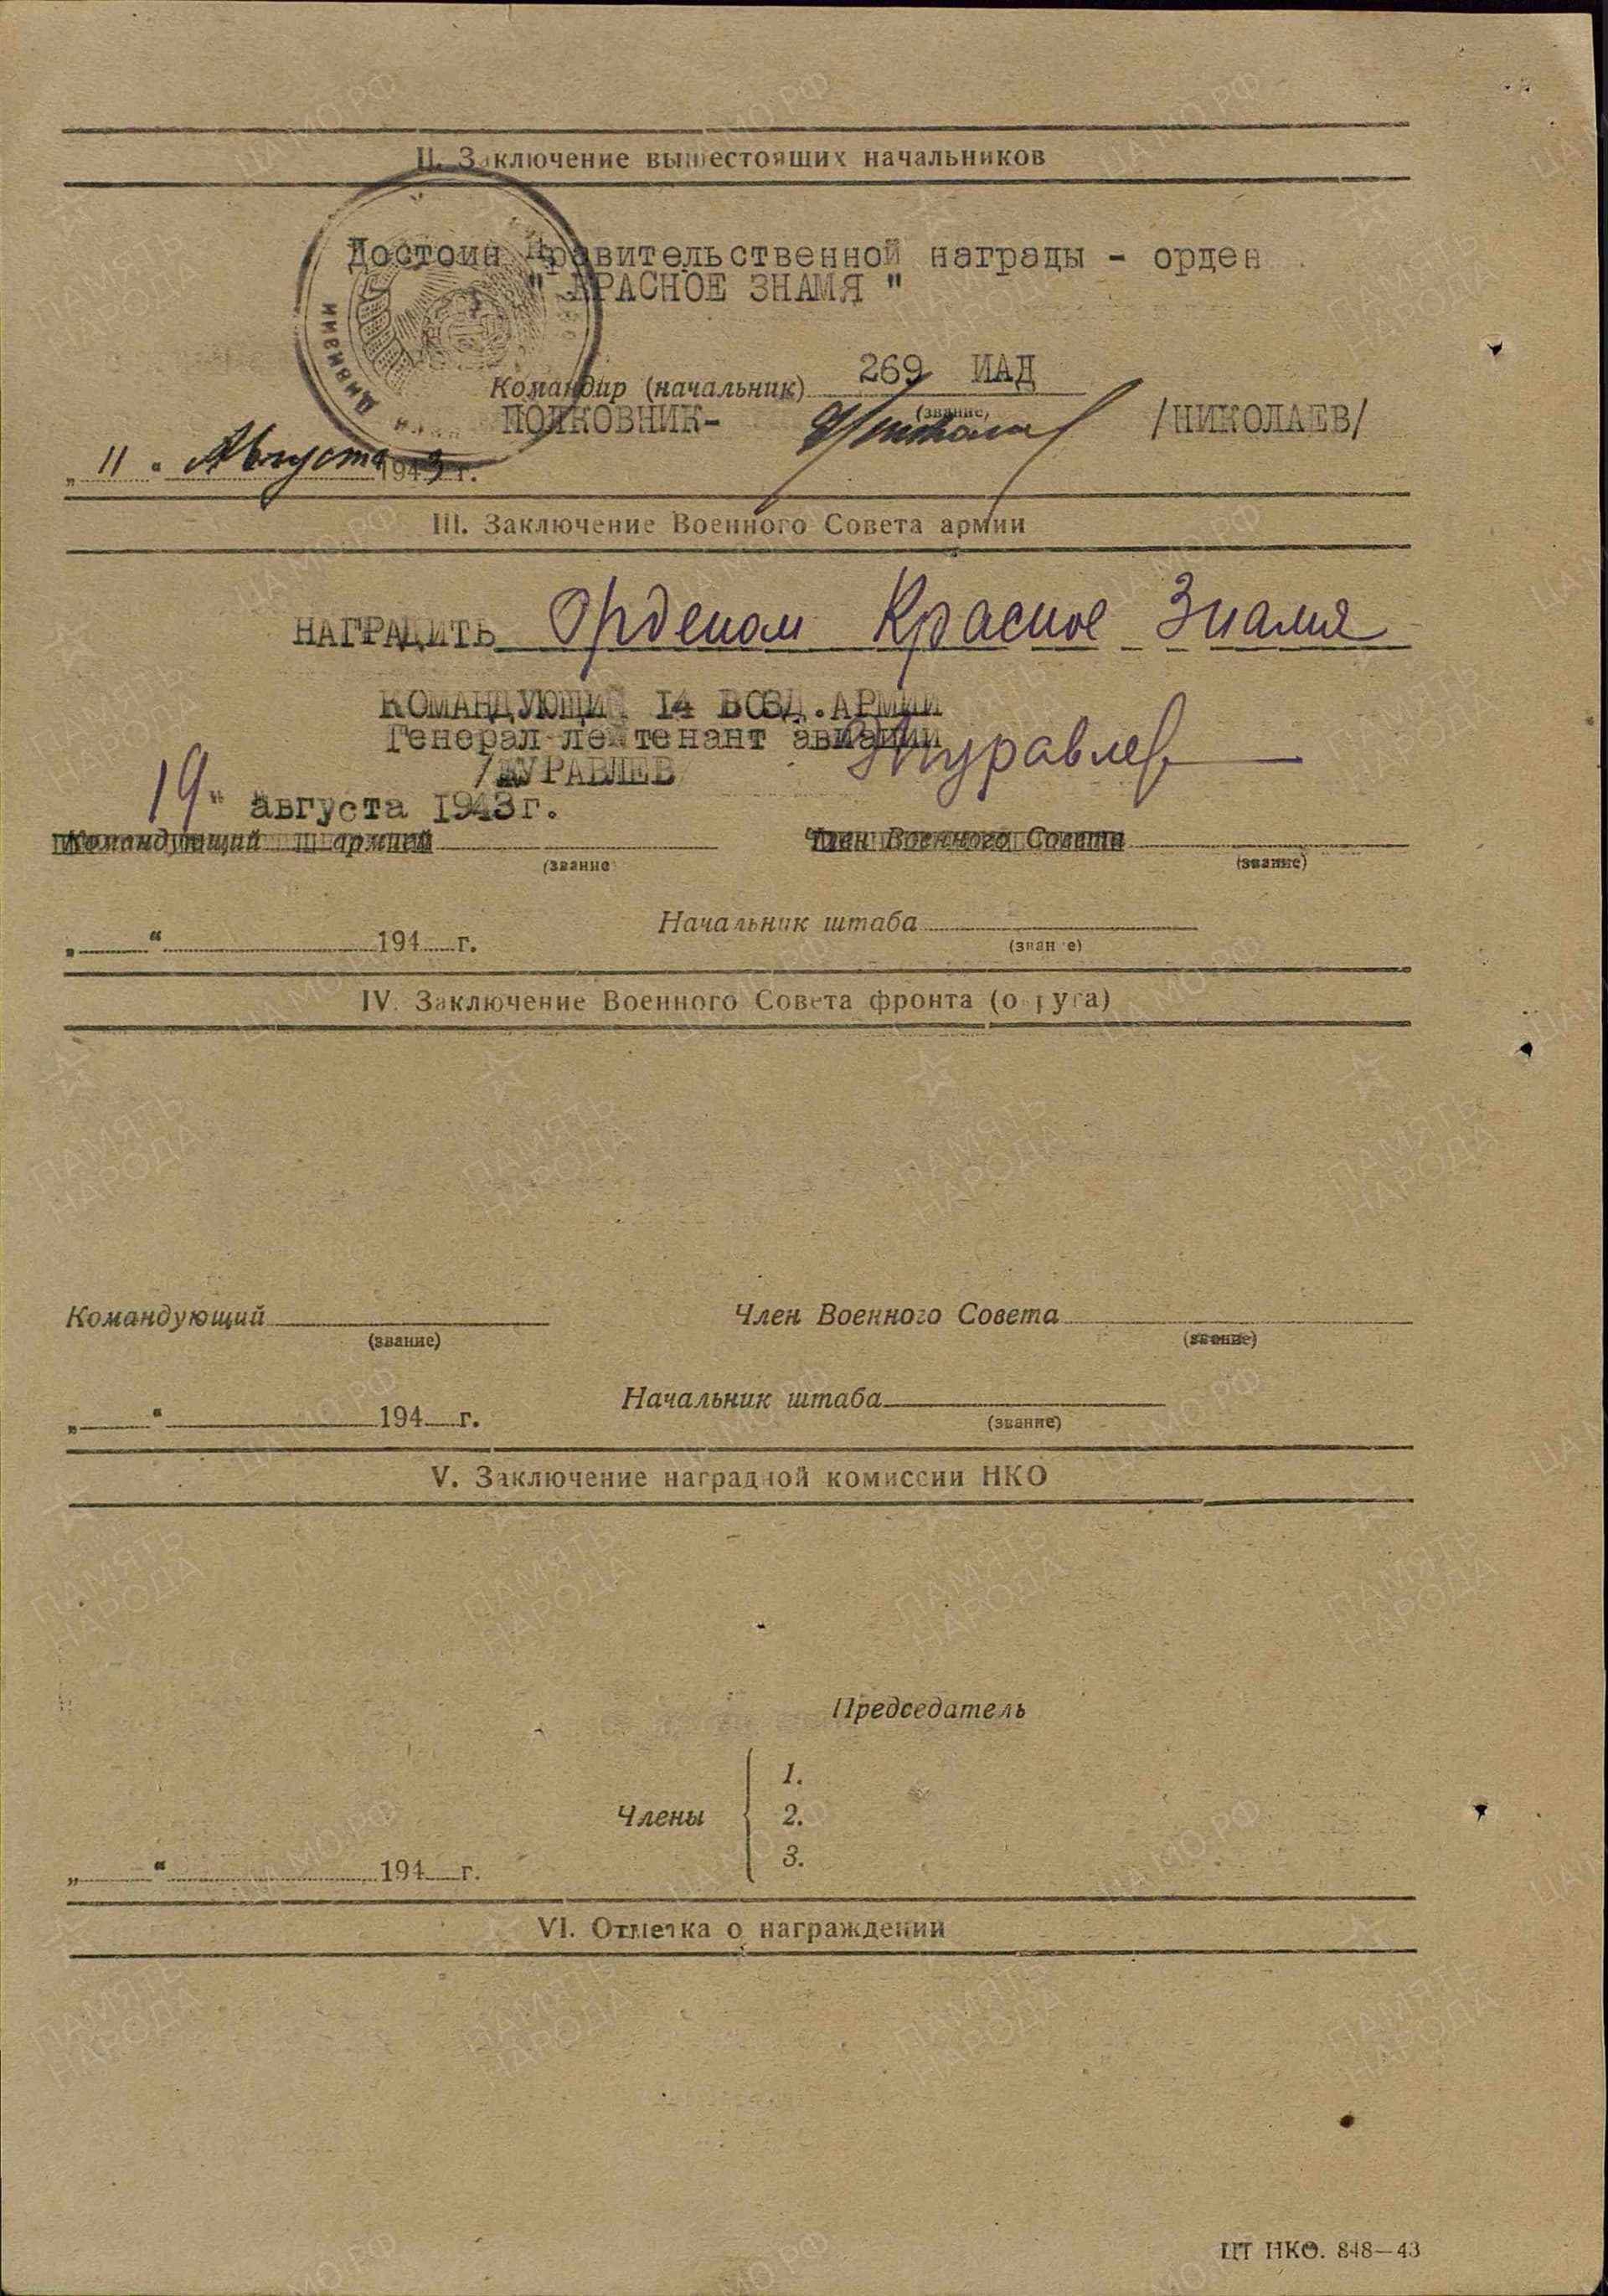 II. Заключение вышестоящих начальников
Достоин Правительственной награды - орден
" КРАСНОЕ ЗНАМЯ "
Командир (начальник) 269 ИАД
(звание)
ПОЛКОВНИК- /НИКОЛАЕВ/
„ 11 " Августа 1943 г.
дивизии
III. Заключение Военного Совета армии
НАГРАДИТЬ Орденом Красное Знамя
КОМАНДУЮЩИЙ 14 ВОЗД. АРМИИ
Генерал-лейтенант авиации
/ЖУРАВЛЕВ/ Журавлев
19 " августа 1943 г.
Командующий армией Член Военного Совета
(звание) (звание)
Начальник штаба
„ “ 194 г. (звание)
IV. Заключение Военного Совета фронта (округа)
Командующий Член Военного Совета
(звание) (звание)
Начальник штаба
„ “ 194 г. (звание)
V. Заключение наградной комиссии НКО
Председатель
1.
Члены 2.
3.
„ “ 194 г.
VI. Отметка о награждении
ЦТ НКО. 848—43
ПАМЯТЬ НАРОДА
ЦА МО.РФ